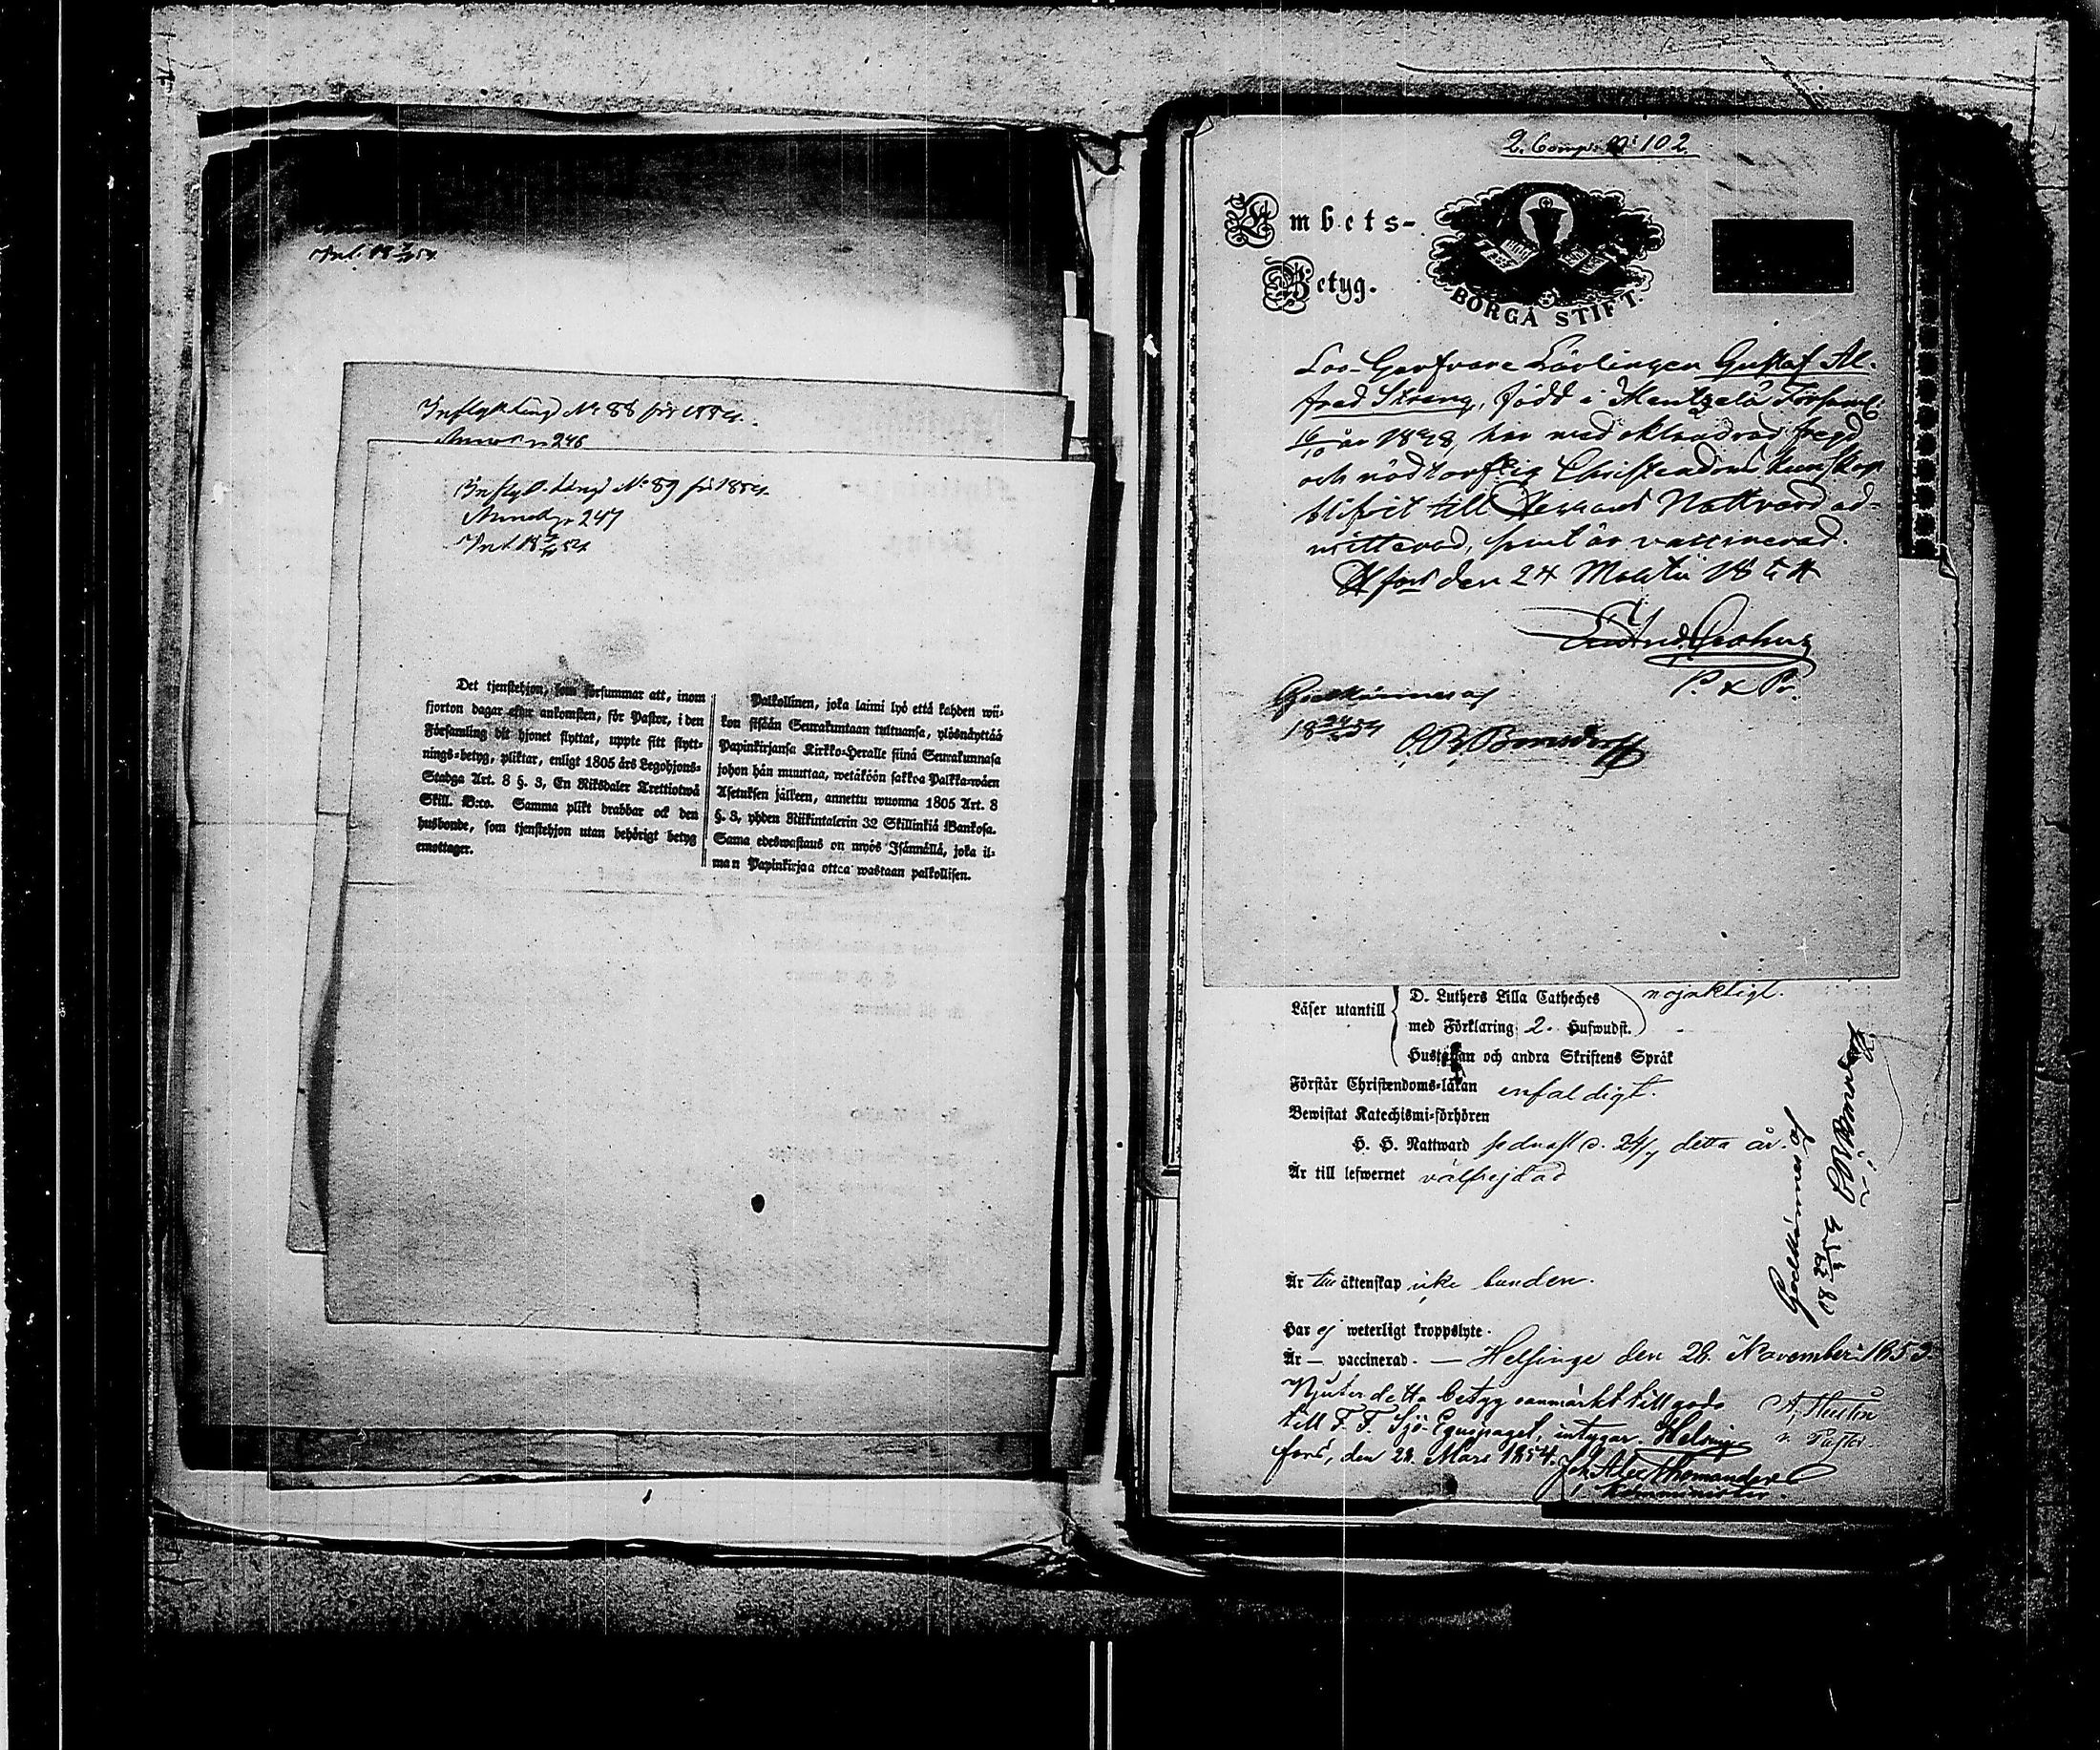 Inflyttningd No 88 för 1854.
246
Inflyttn. längd No 89 för 1854.
Anmäld 247
Det tjenstehjon, som försummar att, inom
fjorton dagar efter ankomsten, för Pastor, i den
Församling dit hjonet flyttat, uppte sitt flytt-
nings-betyg, pliktar, enligt 1805 års Legohjons-
Stadga Art. 8 §. 3, En Riksdaler Trettiotwå
Skill. B:co. Samma plikt drabbar ock den
husbonde, som tjenstehjon utan behörigt betyg
emottager.
Palkollinen, joka laimi lyö että kahden wii-
kon sisään Seurakuntaan tultuansa, ylösnäyttää
Papinkirjansa Kirkko-Heralle siinä Seurakunnasa
johon hän muuttaa, wetäköön sakkoa Palkka-wäen
Asetuksen jälkeen, annettu wuonna 1805 Art. 8
§. 3, yhden Riikintalerin 32 Skillinkiä Bankosa.
Sama edeswastaus on myös Isännällä, joka il-
man Papinkirjaa ottaa wastaan palkollisen.
2. Comp. No 102.
Embets-
Betyg.
BORGÅ STIFT.
Lärlingen Gustaf Al-
fred Strang, född i Mentzelä Församl.
16/10 år 18 8, har med oklandrad fregd
och nödtorftig Christendoms kunskap
blifvit till Herrans Nattvard ad-
mitterad, samt är vaccinerad.
den 24 Martii 1854
P. &
Godkännes af
Läser utantill
D. Luthers Lilla Catheches
med Förklaring 2. Hufwudst.
nöjaktigt.
Hustaflan och andra Skriftens Språk
Förstår Christendoms-läran enfaldigt.
Bewistat Katechismi-förhören
H. H. Nattward sednast d. 24/7 detta år.
Är till lefwernet välfrejdad
Är till äktenskap icke bunden.
Har ej weterligt kroppslyte.
Är — vaccinerad. — Helsinge den 28. November 1853
Njuter detta betyg oanmärkt tillgodo
till F. F. Sjö-Equipaget, intygar. Helsing-
fors, den 28. Mars 1854.
v. Pastor.
Joh. Alex. Thomander
Komminister.
Godkännes af